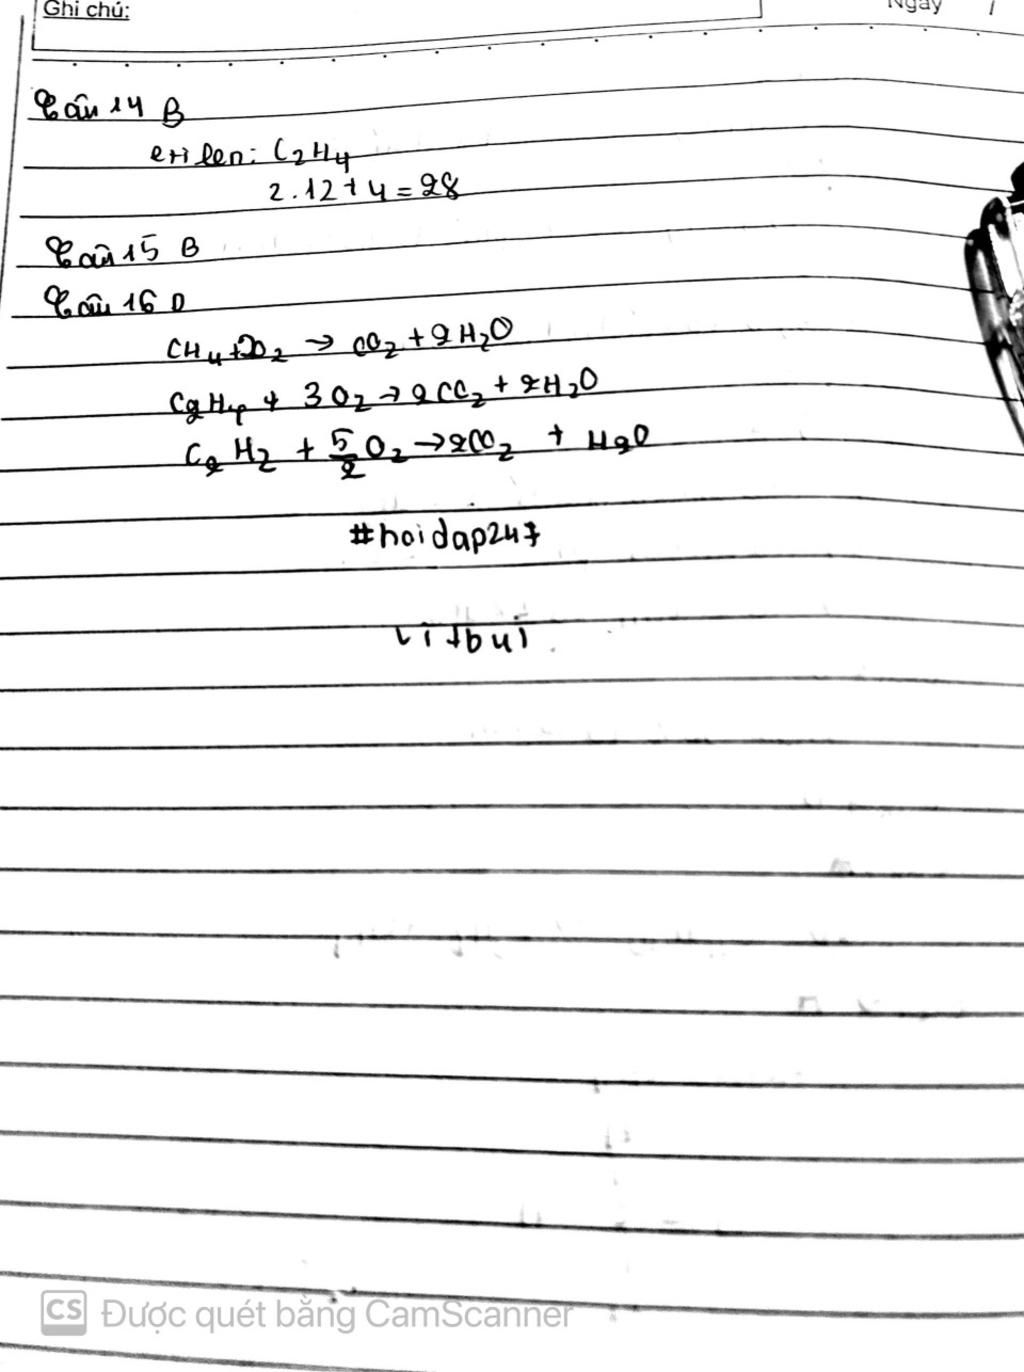 Ghi chú:
Ngày /
Câu 14 B
etilen: C₂H₄
2.12+4=28
Câu 15 B
Câu 16 D
CH₄+2O₂ → CO₂+2H₂O
C₂H₄ + 3O₂→2CO₂+2H₂O
C₂H₂ + 5/2 O₂→2CO₂ + H₂O
#hoidap247
CS Được quét bằng CamScanner